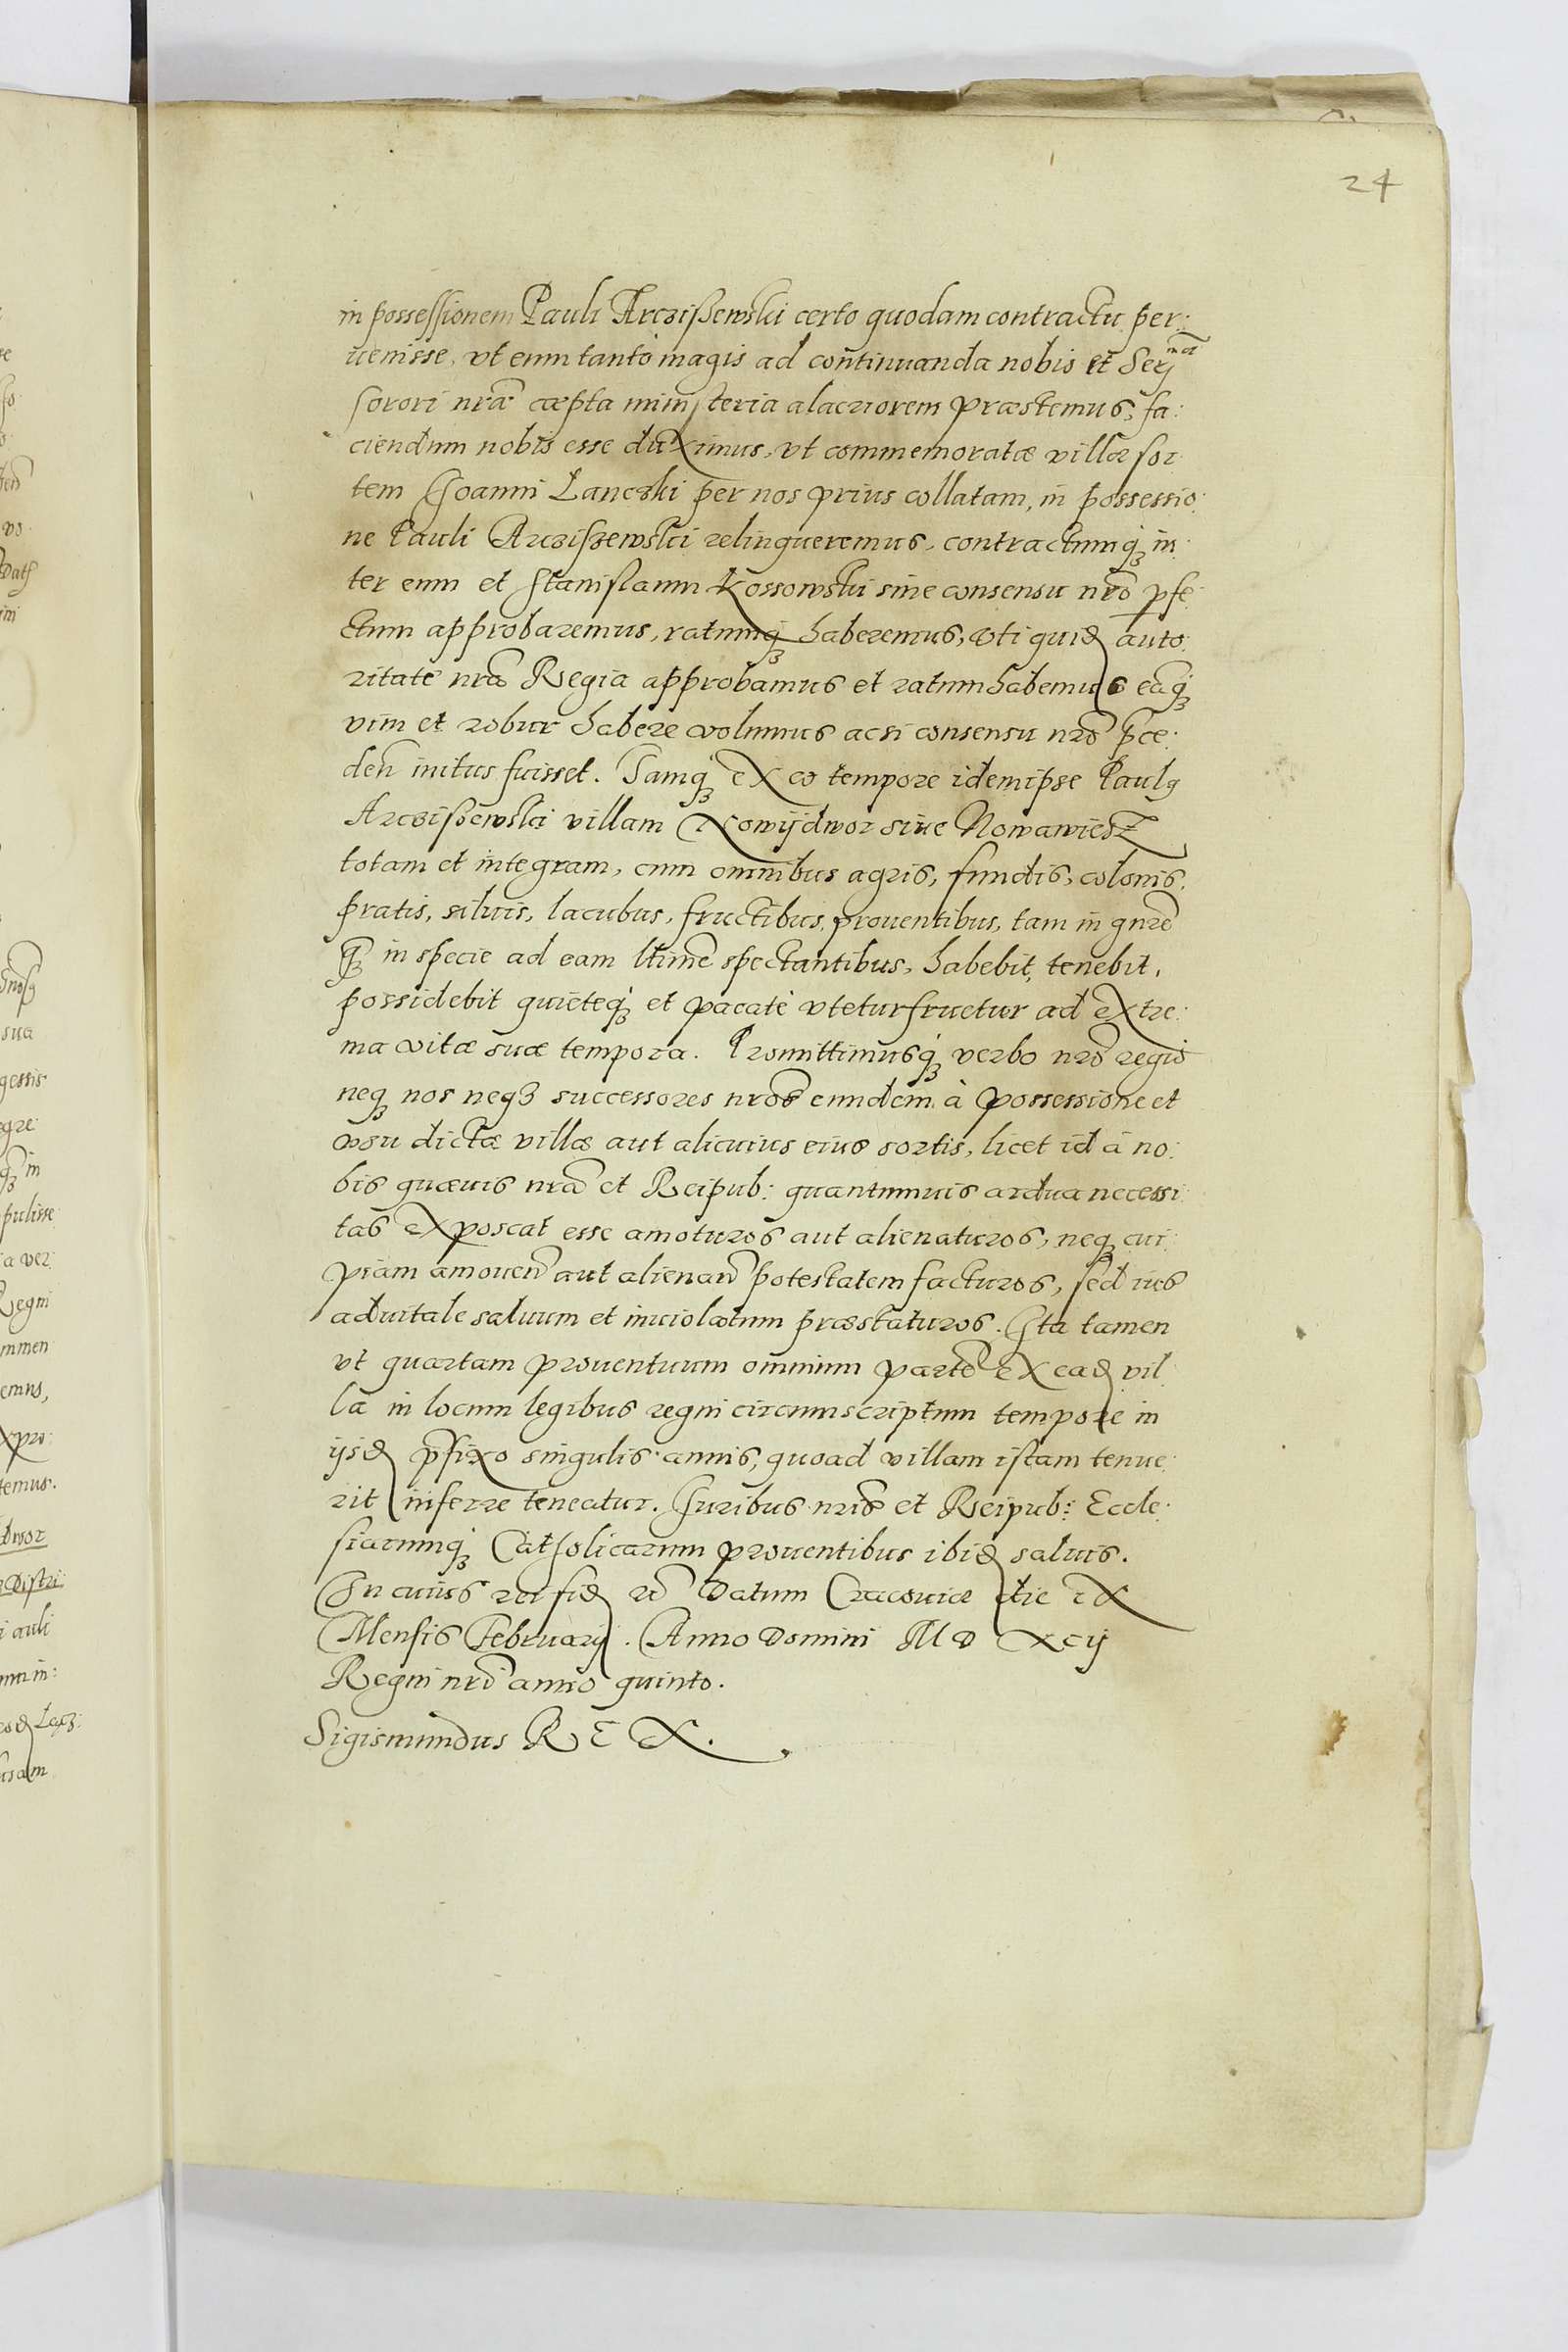 24
in possessionem Pauli Arcziszewski certo quodam contractu per:
uenisse, vt eum tantò magis ad continuanda nobis et Ser
sorori nrãe cæpta ministeria alacriorem præstemus, fa:
ciendum nobis esse duximus, vt commemoratæ villæ sor
tem Joanni Lanczki per nos prius collatam, in possessio:
ne Pauli Arcziszewski relinqueremus, contractumq in
ter eum et Stanislaum Kossowski sine consensu nrõ pfe
ctum approbaremus, ratumq haberemus, vti quid auto:
ritate nrã Regia approbamus et ratum habemus eãq
vim et robur habere volumus acsi consensu nrõ pce:
deñ initus fuisset. Jamq ex eo tempore idem ipse Paulg
Arcziszewski villam Nowydwor siue Nowawiesz
totam et integram, cum omnibus agris, fundis, colonis,
pratis, siluis, lacubus, fructibus, prouentibus, tam in gnrẽ
q in specie ad eam ltimẽ spectantibus, habebit, tenebit,
possidebit quieteq et pacatè vteturfruetur ad extre:
ma vitæ suæ tempora. Promittimusq verbo nrõ regio
neq nos neq3 successores nrõs eundem à possessione et
vsu dictæ villæ aut alicuius eius sortis, licet id à no:
bis quæuis nrã et Reipub: quantumuis ardua necessi
tas exposcat esse amoturos aut alienaturos, neq cui
piam amouend aut alienand potestatem facturos, sed ius
aduitale saluum et inuiolatum præstaturos. Ita tamen
vt quartam prouentuum omnium partẽ ex ead vil
la in locum legibus regni circumscriptum tempore in
ijsd pfixo singulis annis, quoad villam istam tenue
rit inferre teneatur. Juribus nrĩs et Reipub: Eccle:
siarumq Catholicarum prouentibus ibid saluis.
In cuius rei fid rõ Datum Cracouiæ die IX
Mensis February. Anno Domini M D XCij
Regni nrĩ anno quinto.
Sigismundus REX.